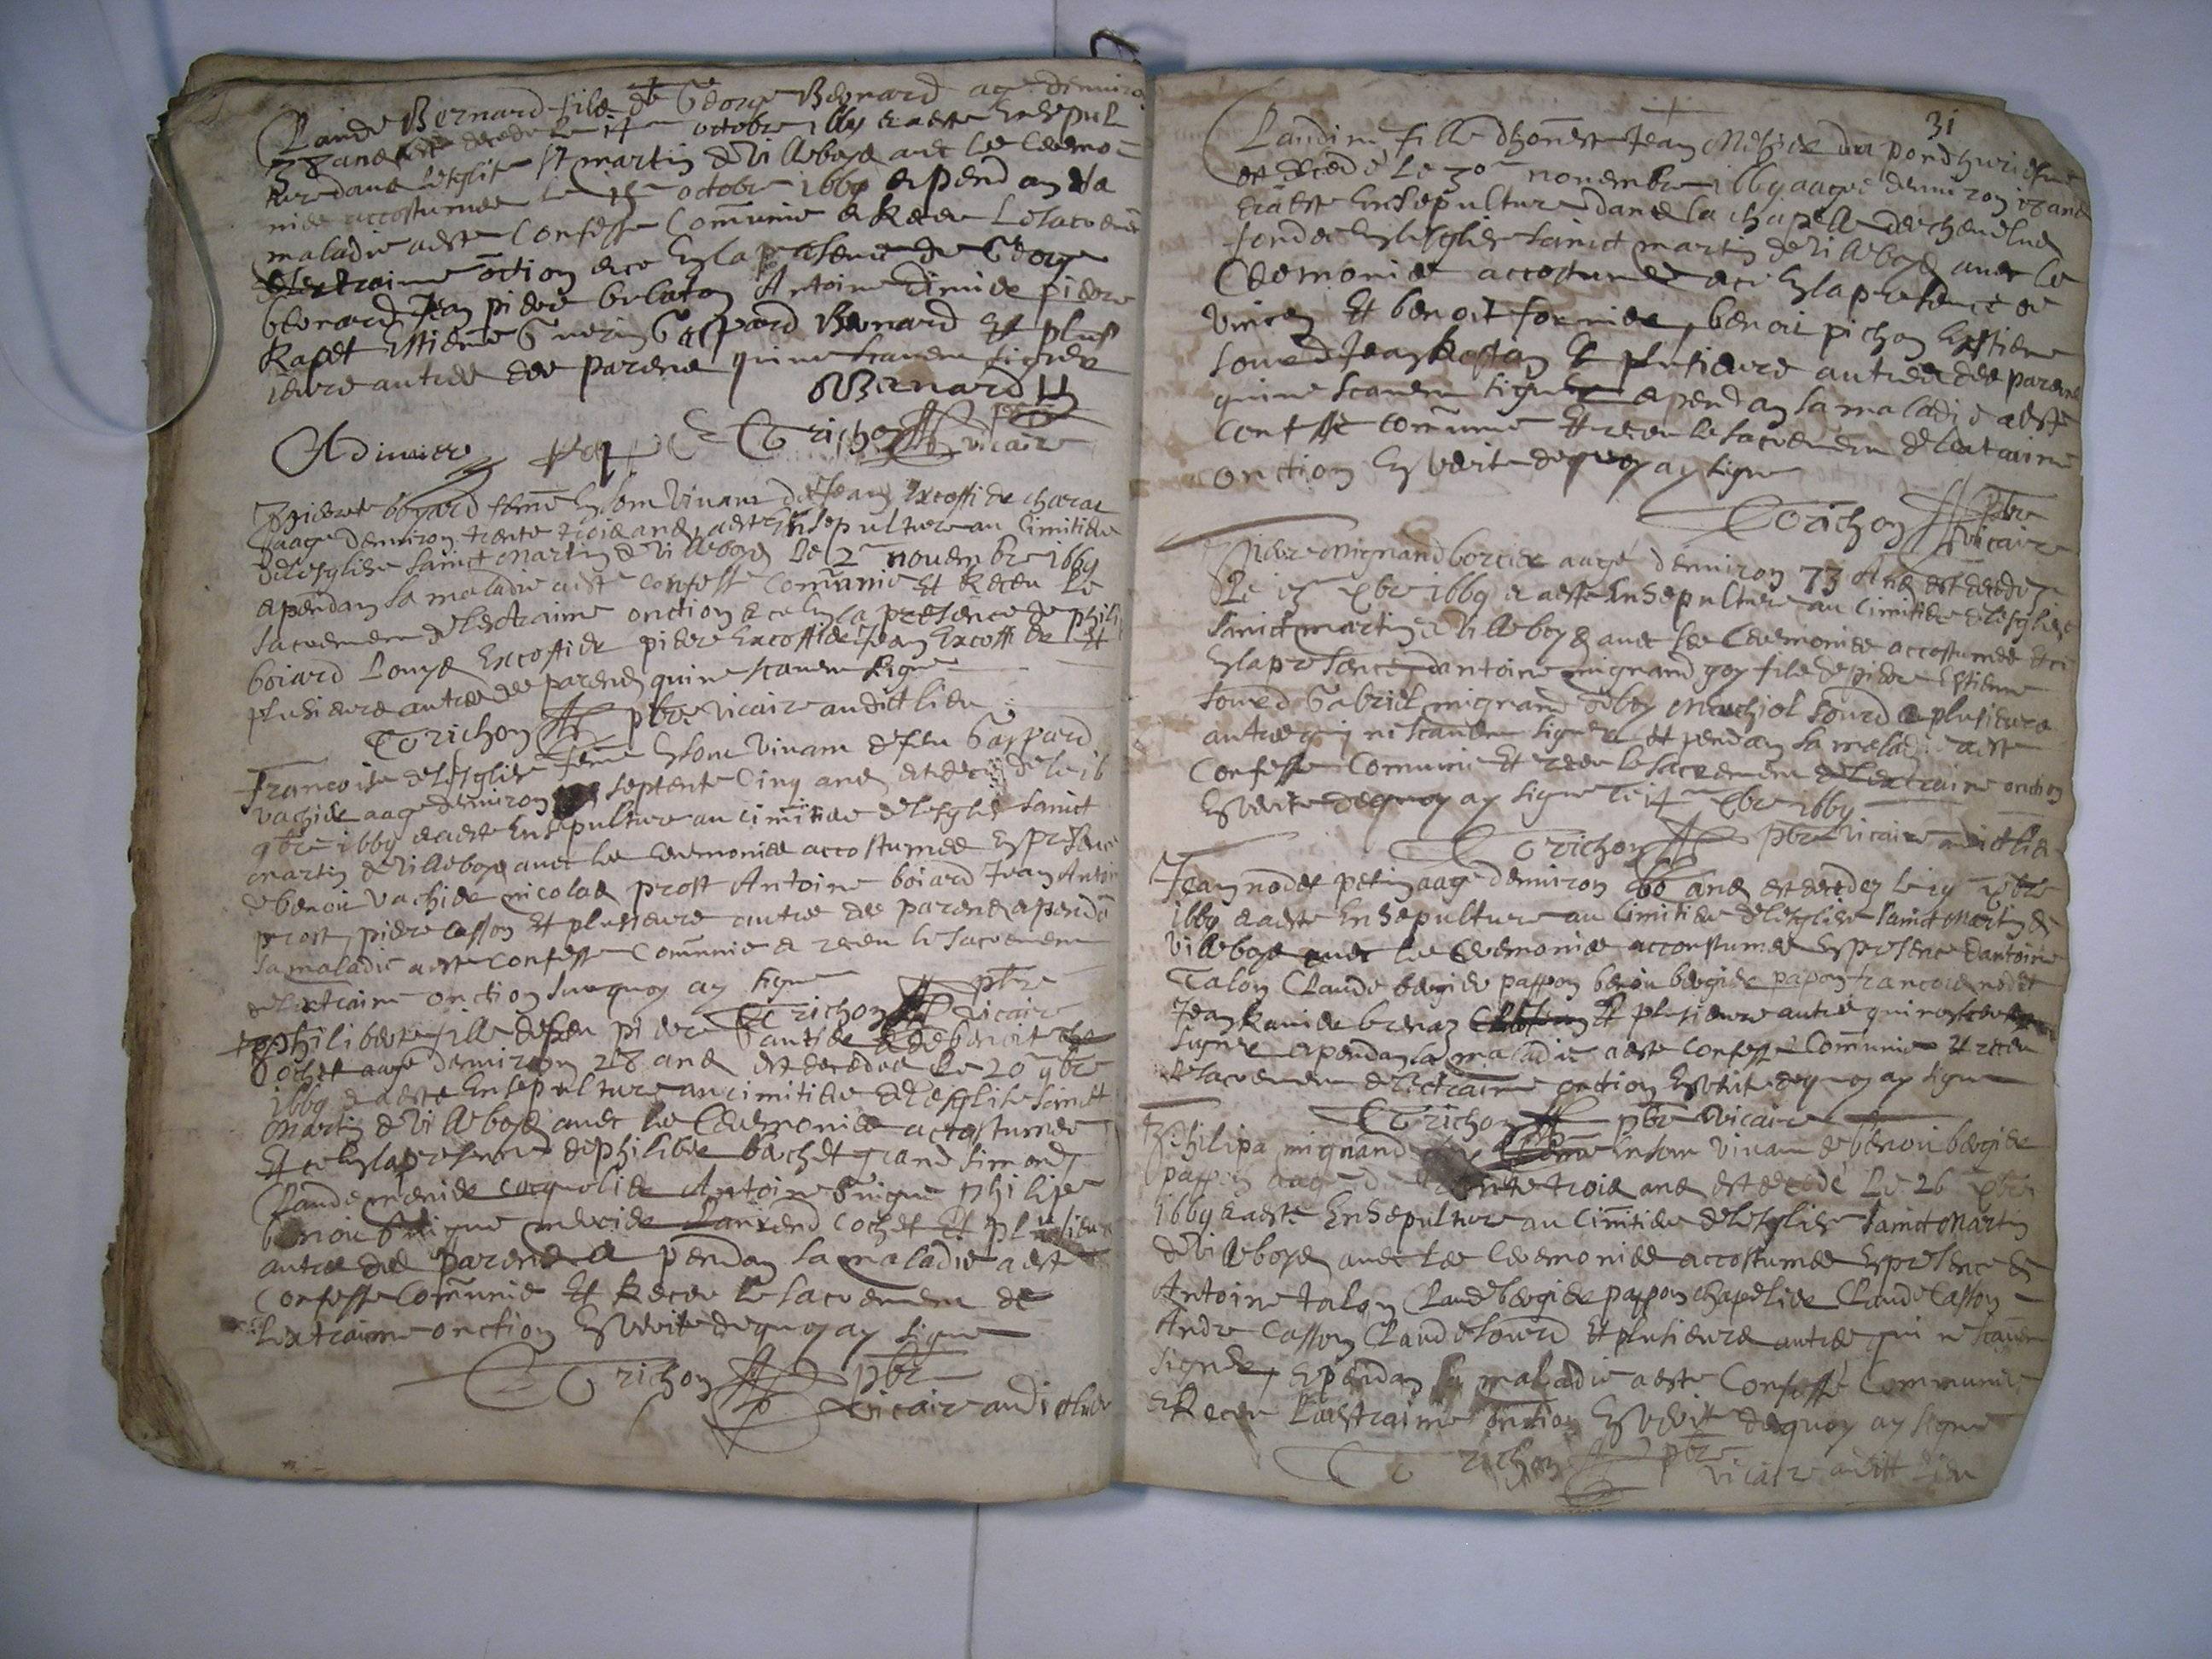 Claude Bernard filz de George Bernard age denviron
38 ans est decede le 14me octobre 1669 et a este ensepul
ture dans lesglise St martin de Villeboys avec les ceremo
nies accostumees le 15me octobre 1669 et pendan sa
maladie a este confesse Comunie et Receu le sacremen
de lextraime onction et ce en la presence de George
bernard Jean piere Antoine dimier piere
Rapet Estiene Guerin Gaspard Bernard Et plus
ieurs autres des parens qui ne scaven signer
GBernard
ADimier Trichon pbre vicaire
pierete boyard feme en son vivant de Jean Excoffier
aage denviron trente trois ans a este ensepulture au Cimitiere
de lesglise Sainct Martin de Villeboys le 2me novembre 1669
et pendan sa maladie a este confesse Comunie Et Receu Le
sacremen de lestraime onction et ce en la presence de phili
boiard Louys Excoffier piere Excoffier Jean Excoffier Et
plusieurs autres des parens qui ne scaven signe
Trichon pbre vicaire audict lieu
Francoise de lesglise feme en son vivant de feu Gaspard
vachier aage denviron septente Cinq ans est decedee le 16
9bre 1669 et a este Ensepulture au cimitiere de lesglise Sainct
Martin de Villeboys avec les ceremonies accostumees En presence
de benoit vachier nicolas prost Antoine boiard Jean Antoine
prost piere casson Et plusieurs autres des parens et pendan
sa maladie a este confesse Comunie et receu le sacremen
de lextraime onction surquoy ay signe
Trichon pbre vicaire
philiberte fille de feu piere et de benoite
Cochet aage denviron 28 ans est decedee Le 20me 9bre
1669 et a este Ensepulture au cimitiere de lesglise Sainct
Martin de Villeboys avec les Ceremonies accostumees
Et ce en la presence de philibert bachet grand simond
Claude Antoine philipe
benoit mercier Cochet Et plusieurs
autres des parens Et pendan sa maladie a este
Confesse Comunie Et Receu le sacremen de
lextraime onction En verite de quoy ay signe
Trichon pbre
vicaire audict lieu
31
Claudine fille dhoneste Jean
est decede Le 30me novembre 1669 aagee denviron 18 ans
et a este Ensepulture dans la chapelle
fonde en lesglise Sainct martin de Villeboys avec le
Ceremonies accostumees et ce en la presence de
vincen Et benoit fornier benoit pichon Estiene
sourd Jean Et plusieurs autres des parens
qui ne scaven signer et pendan sa maladie a este
confesse comunie Et receu le sacremen de lextraime
onction En verite de quoy ay signe
Trichon pbre
vicaire
Piere mignand borcier aagé denviron 73 Ans est decedez
Le xbre 1669 et a este Ensepulture au cimitiere de lesglise
Sainct martin de Villeboys avec les Ceremonies accostumees et ce
En la presence dantoine mignand goy filz de piere Estiene
sourd Gabriel mignand sourd et plusieurs
autres qui ne scaven signer et pendan sa maladie a este
Confesse Comunie Et receu le sacremen de lextraime onction
En verite de quoy ay signe le 14me xbre 1669
Trichon pbre vicaire audict lieu
Jean nodet petin aage denviron 66 ans est decedez le 19 xbre
1669 et a este Ensepulture au Cimitiere de lesglise Sainct Martin de
Villeboys avec les Ceremonies accoustumees En presence dantoine
Talon Claude bergier pappon benoit bergier papon francois nodet
Jean Ravier Et plusieurs autres qui ne scaven
signer et pendan sa maladie a este confessé Comunie Et receu
le sacremen de lextraime onction En verite de quoy ay signe
Trichon pbre vicaire
Philipa mignand feme en son vivan de benoit bergier
pappon aagee de trente trois ans est decedé Le 26 xbre
1669 et a este Ensepulture au Cimitiere de lesglise Sainct Martin
de Villeboys avec les Ceremonies accostumees En presence de
Antoine talon Claude bergier pappon chapelier Claude Casson
Andre Casson Claude Sourd Et plusieurs autres qui ne scaven
signer, Et pendan sa maladie a este Confessé Communie
et Receu Laextraime onction En verite de quoy ay signe
Trichon pbre
vicaire audict lieu